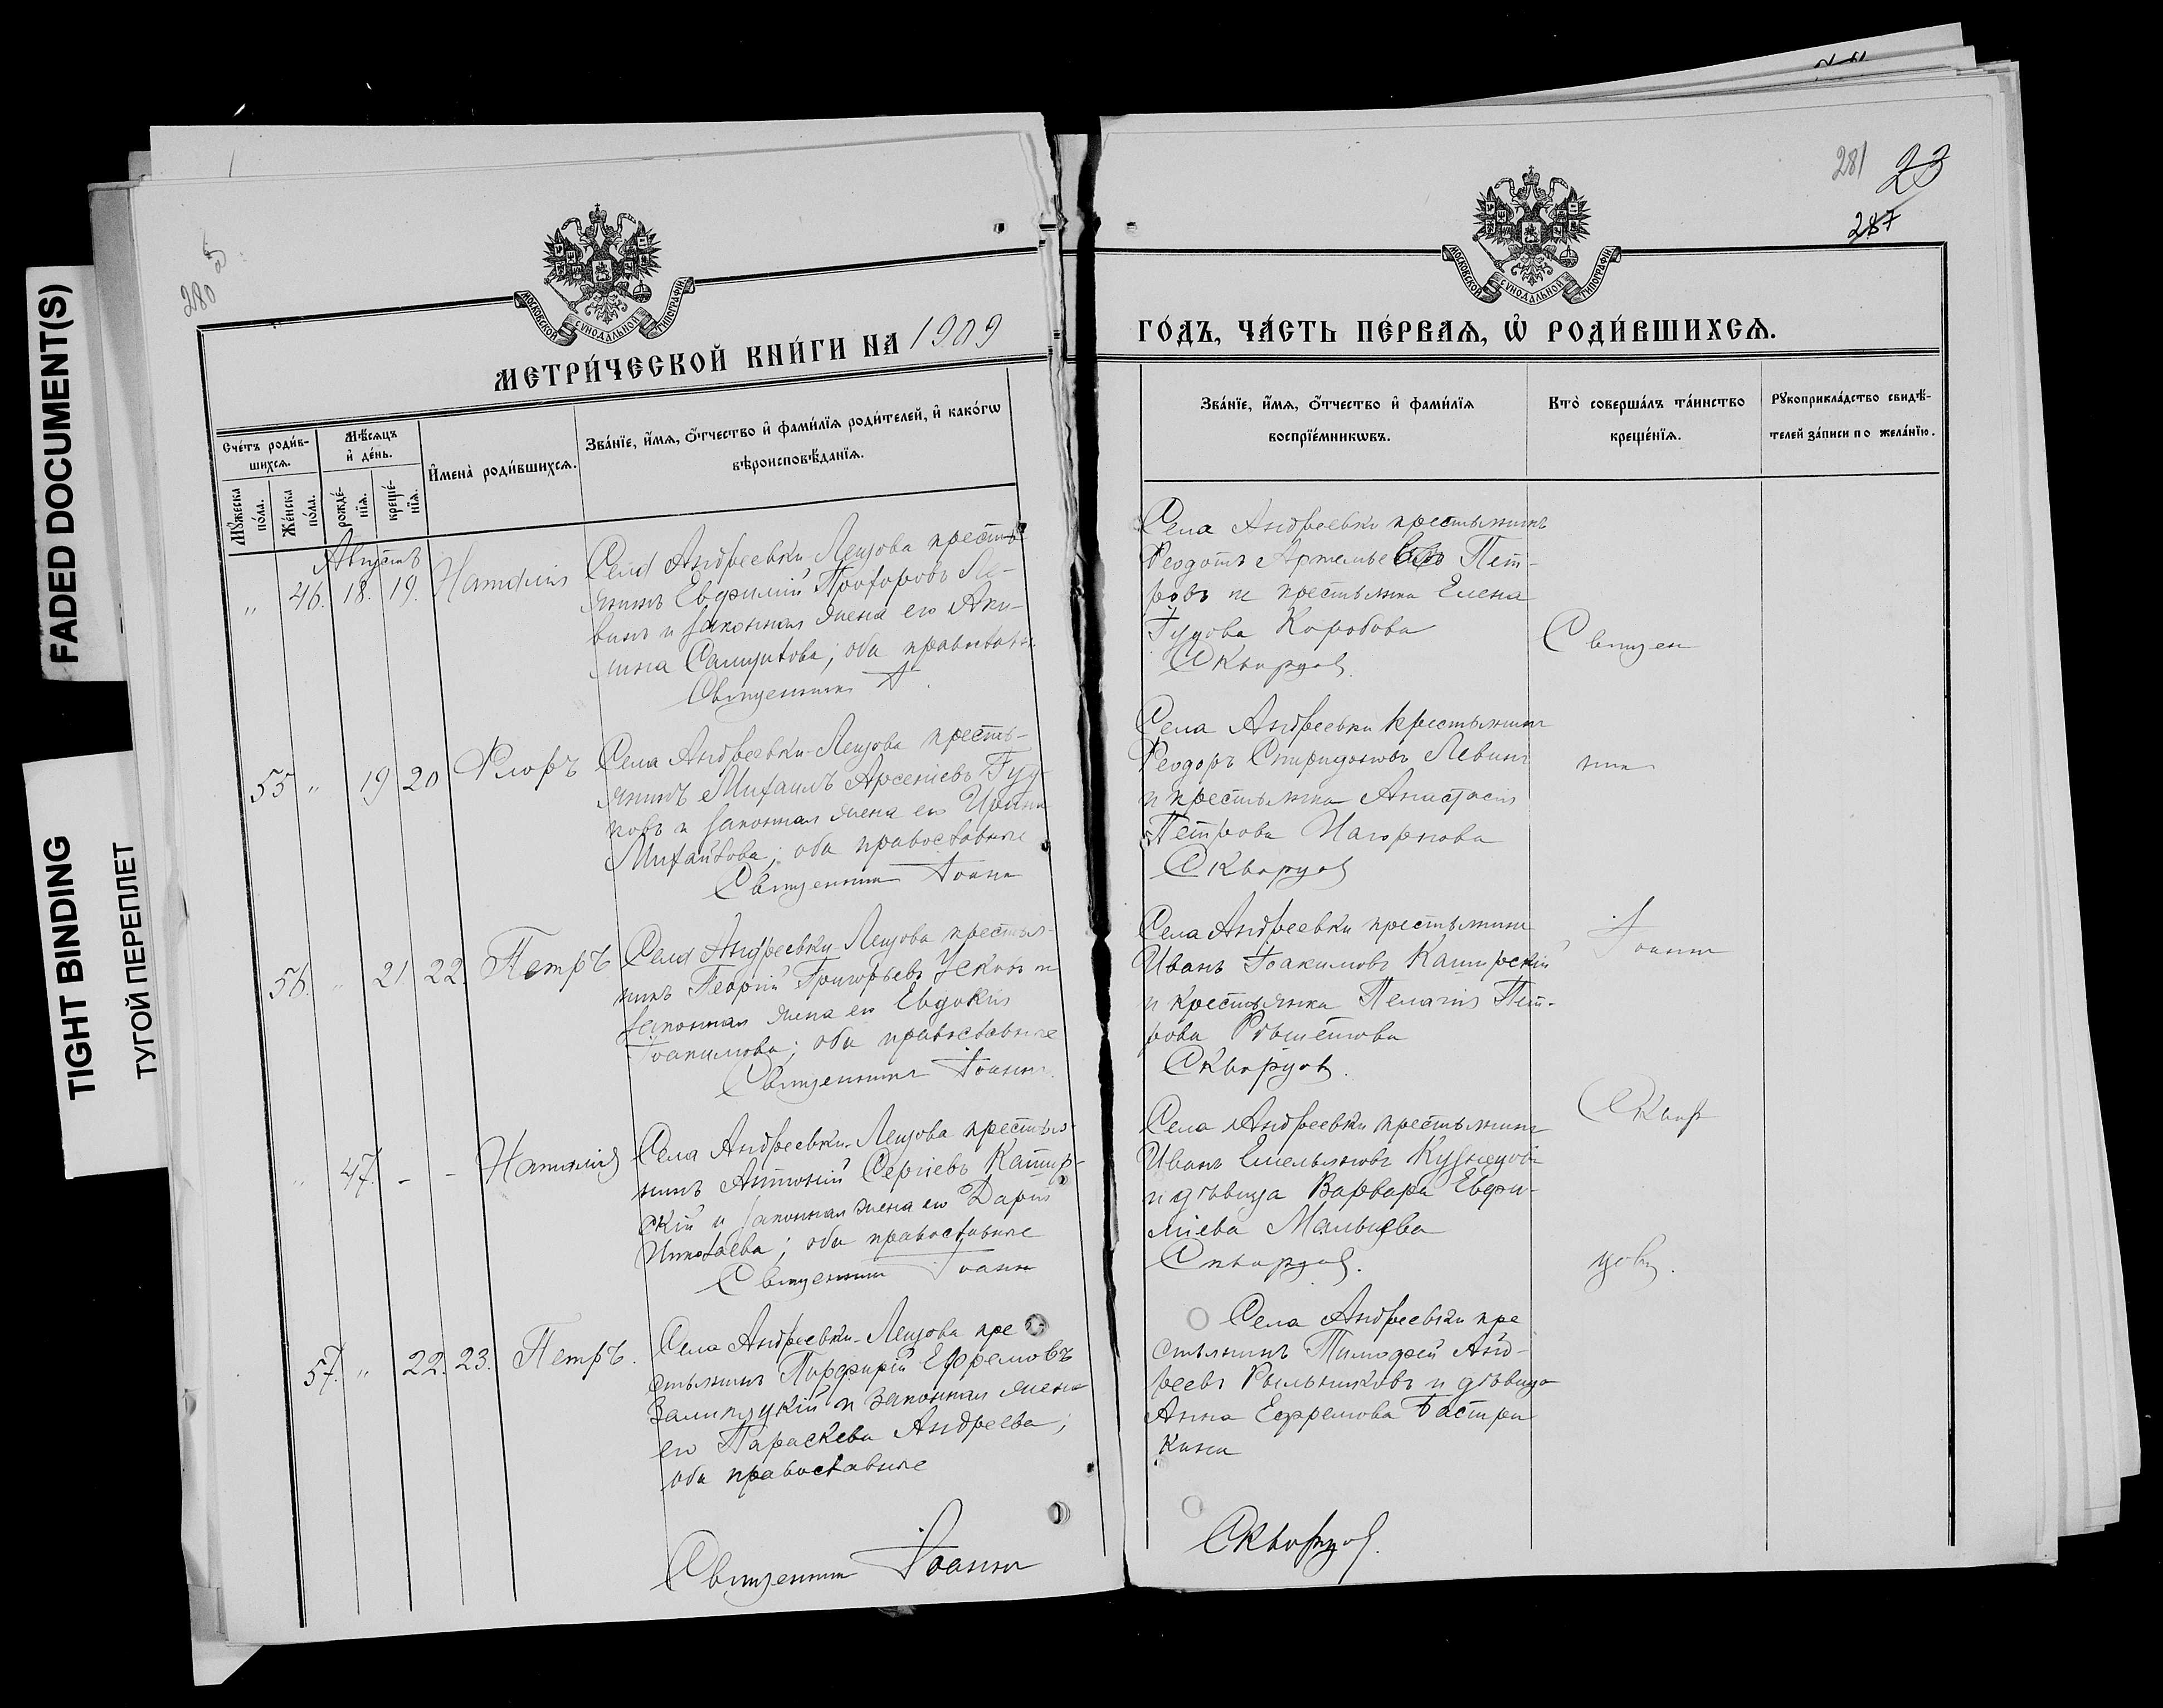 FADED DOCUMENT(S)
TIGHT BINDING
ТУГОЙ ПЕРЕПЛЕТ
280
МОСКОВСКОЙ СѴНОДАЛЬНОЙ ТИПОГРАФІИ
МЕТРИ́ЧЕСКОЙ КНИ́ГИ НА 1909
Сче́тъ роди́в-
шихсѧ.
Мѣ́сѧцъ
и҆ де́нь.
И҆мена̀ роди́вшихсѧ.
Зва́нїе, и҆́мѧ, ѻ҆́тчество и҆ фами́лїѧ роди́телей, и҆ како́гѡ
вѣроисповѣ́данїѧ.
Мꙋ́жеска
по́ла.
Же́нска
по́ла.
рожде́-
нїѧ.
креще́-
нїѧ.
Августъ
„ 46. 18. 19. Наталія
Села Андреевки-Лещова крестья
янинъ Евфимій Прохоровъ Ле-
винъ и законная жена его Аки-
лина Самуилова; оба православн.
Священникъ І
55 „ 19 20 Флоръ
Села Андреевки-Лещова кресть-
янинъ Михаилъ Арсеніевъ Гуд-
ковъ и законная жена его Ирина
Михайлова; оба православные
Священникъ Іоаннъ
56. „ 21 22. Петръ
Села Андреевки-Лещова крестья-
нинъ Георгій Григорьевъ Усковъ и
законная жена его Евдокія
Іоакимова; оба православные
Священникъ Іоаннъ.
„ 47. - - Наталія
Села Андреевки-Лещова крестья-
нинъ Антоній Сергіевъ Кашир-
скій и законная жена его Дарія
Николаева; оба православные
Священникъ Іоаннъ
57. „ 22. 23. Петръ.
Села Андреевки-Лещова кре
стьянинъ Порфирій Ефремовъ
и законная жена
его Параскева Андреева;
оба православные
Священникъ Іоаннъ
281 23
287
МОСКОВСКОЙ СѴНОДАЛЬНОЙ ТИПОГРАФІИ
ГО́ДЪ, ЧА́СТЬ ПЕ́РВАѦ, Ѡ҆ РОДИ́ВШИХСѦ.
Зва́нїе, и҆́мѧ, ѻ҆́тчество и҆ фами́лїѧ
воспрїе́мникѡвъ.
Кто̀ соверша́лъ та́инство
креще́нїѧ.
Рꙋкоприкла́дство свидѣ́-
телей за́писи по жела́нїю.
Села Андреевки крестьянинъ
Феодотъ Артемьевъ Пет-
ровъ и крестьянка Елена
Гудова Коробова
Скворцов.
Села Андреевки крестьянинъ
Феодоръ Спиридоновъ Левинъ
и крестьянка Анастасія
Петрова Нагорнова
Скворцов
Села Андреевки крестьянинъ
Иванъ Іоакимовъ Каширскій
и крестьянка Пелагія Пет-
рова Рѣшетова
Скворцов.
Села Андреевки крестьянинъ
Иванъ Емельяновъ Кузнецовъ
и дѣвица Варвара Евфи-
міева Мальцева
Скворцов.
Села Андреевки кре
стьянинъ Тимофей Анд-
реевъ Рыльниковъ и дѣвица
Анна Ефремова Бастры
кина
Скворцов.
Священ
никъ
Іоаннъ
Сквор
цовъ.